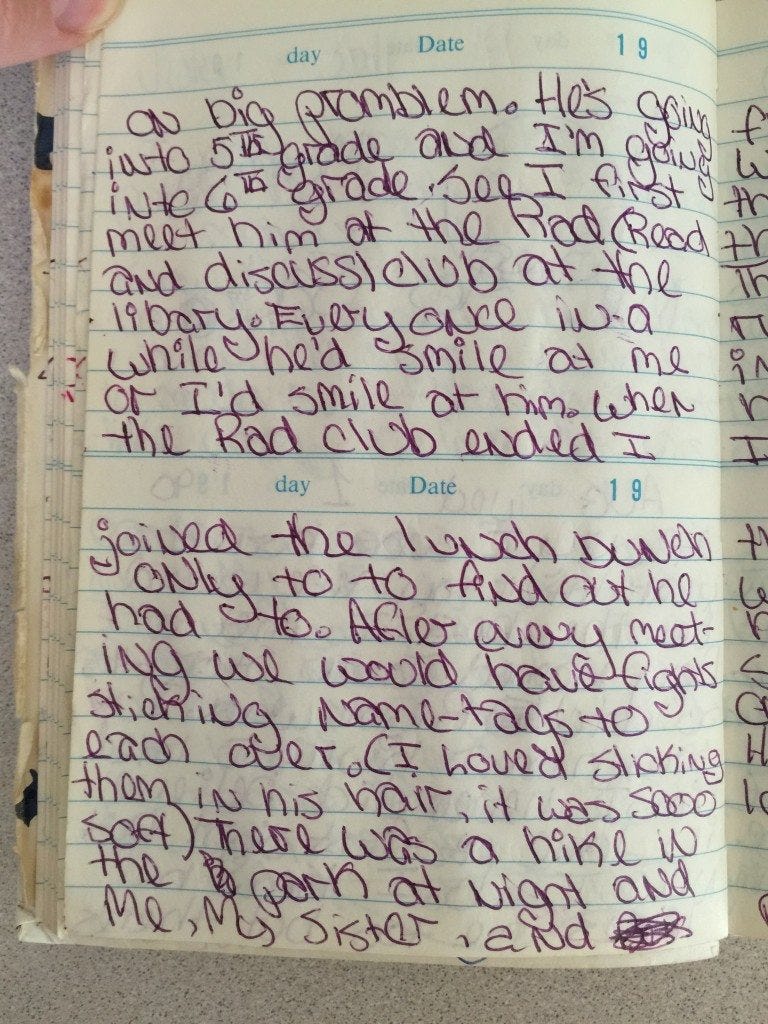 day Date 19
on big promblem. He's going
into 5th grade and I'm going
into 6th grade. See I first
meet him at the Rad (Read
and discuss) club at the
libary. Every once in-a
while he'd smile at me
or I'd smile at him. When
the Rad club ended I
day Date 19
joined the lunch bunch
only to to find out he
had to. After every meet-
ing we would have fights
sticking Name-tags to
each over. (I loved sticking
them in his hair, it was sooo
soft) There was a hike in
the park at night and
Me, My sister, and